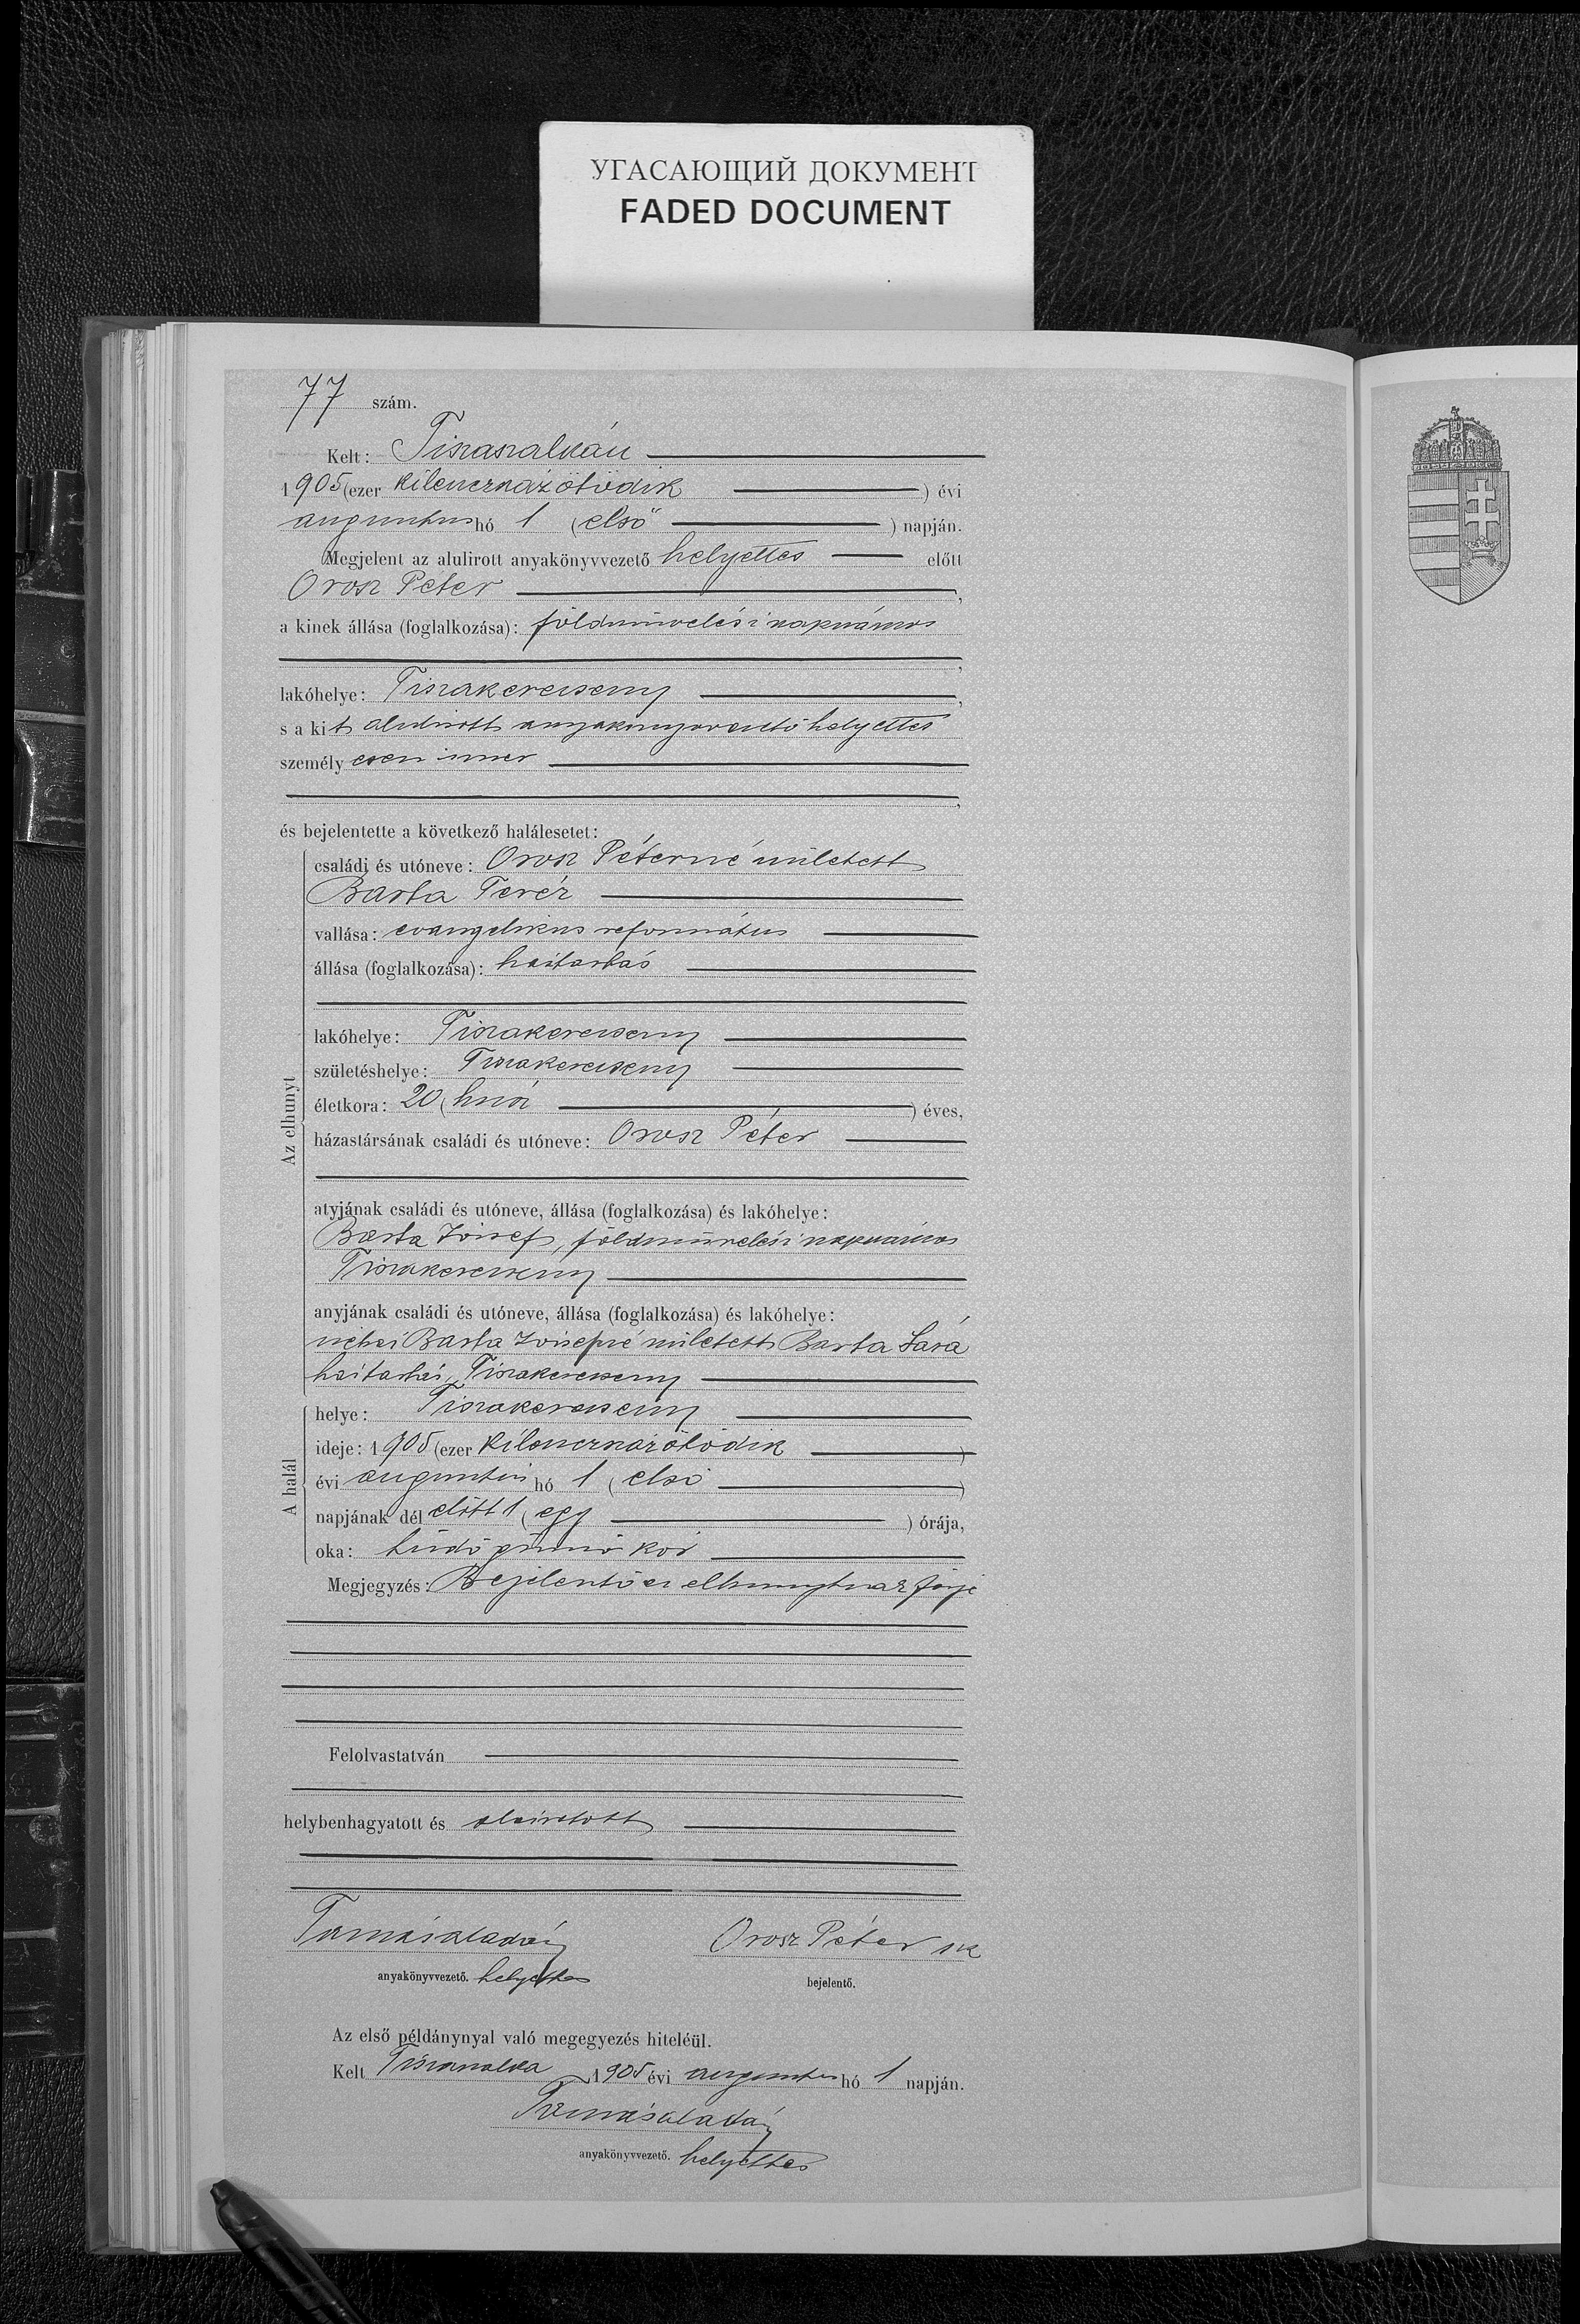 УГАСАЮЩИЙ ДОКУМЕНТ
FADED DOCUMENT
77 szám.
Kelt: Tiszaszalkán
1905 (ezer kilenczszáz ötödik ) évi
augusztus hó 1 (első ) napján.
Megjelent az alulirott anyakönyvvezető helyettes előtt
Orosz Péter ,
a kinek állása (foglalkozása): földmüvelési napszámos
,
lakóhelye: Tiszakerecseny ,
s a kit alulirott anyakönyvvezető helyettes
személyesen ismer
,
és bejelentette a következő halálesetet:
Az elhunyt
családi és utóneve: Orosz Péterné született
Barta Teréz
vallása: evangelikus református
állása (foglalkozása): háztartás
lakóhelye: Tiszakerecseny
születéshelye: Tiszakerecseny
életkora: 20 (húsz ) éves,
házastársának családi és utóneve: Orosz Péter
atyjának családi és utóneve, állása (foglalkozása) és lakóhelye:
Barta József, földmüvelési napszámos
Tiszakerecseny
anyjának családi és utóneve, állása (foglalkozása) és lakóhelye:
néhai Barta Józsefné született Barta Sára
háztartás, Tiszakerecseny
A halál
helye: Tiszakerecseny
ideje: 1905 (ezer kilenczszáz ötödik )
évi augusztus hó 1 (első )
napjának dél előtt 1 (egy ) órája,
oka: tüdő gümő kór
Megjegyzés: Bejelentő az elhunytnak férje
Felolvastatván
helybenhagyatott és aláiratott
Tamásaladár Orosz Péter sk
anyakönyvvezető. helyettes bejelentő.
Az első példánynyal való megegyezés hiteléül.
Kelt Tiszaszalka 1905 évi augusztus hó 1 napján.
Tamásaladár
anyakönyvvezető. helyettes